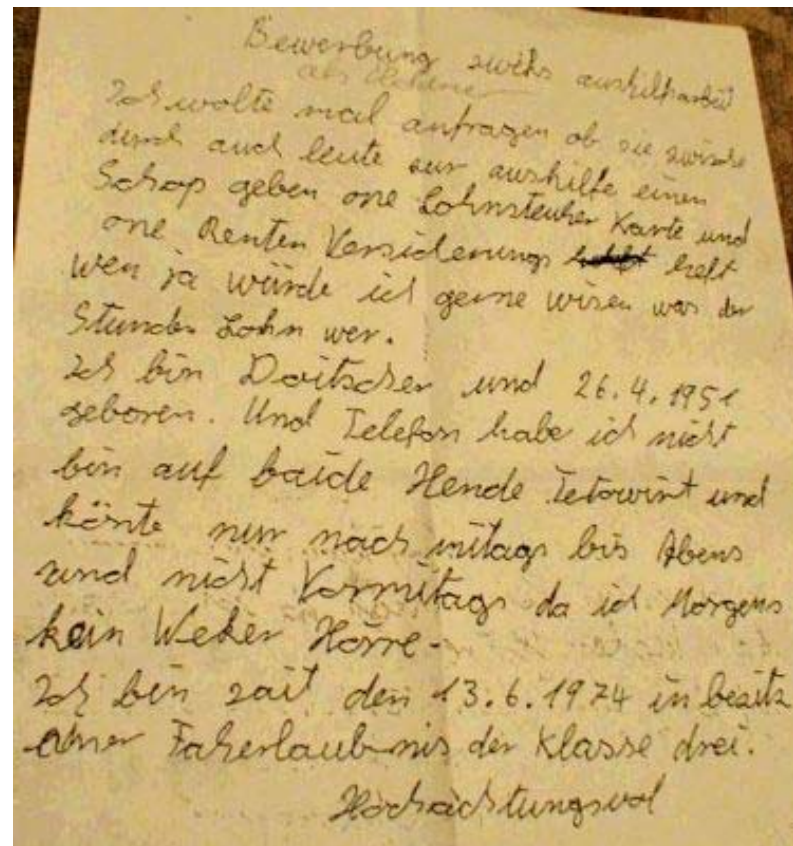 Bewerbung zweks aushilfsarbeit
als
Ich wolte mal anfragen ob sie zwische
durch auch leute zur aushilfe einen
Schop geben one Lohnsteuher Karte und
one Renten Versicherungs heft
wen ja würde ich gerne wisen was der
Stunden Lohn wer.
Ich bin Doitscher und 26.4.1951
geboren. Und Telefon habe ich nicht
bin auf baide Hende Tetowirt und
könte nur nach mitags bis Abens
und nicht Vormitags da ich Morgens
kein Weker Hörre.
Ich bin zait den 13.6.1974 in besitz
ainer Faherlaubnis der Klasse drei.
Hochachtungsvol